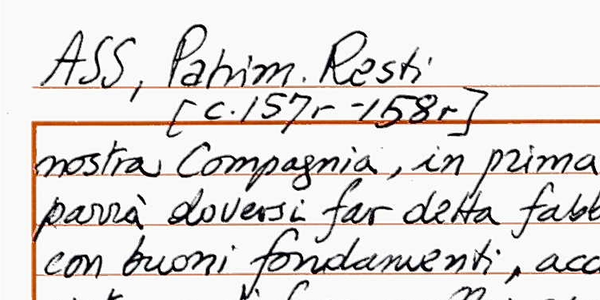 ASS, Patrim. Resti
[c.157r-158r]
nostra Compagnia, in prima
parrà doversi far detta fabb
con buoni fondamenti, acc